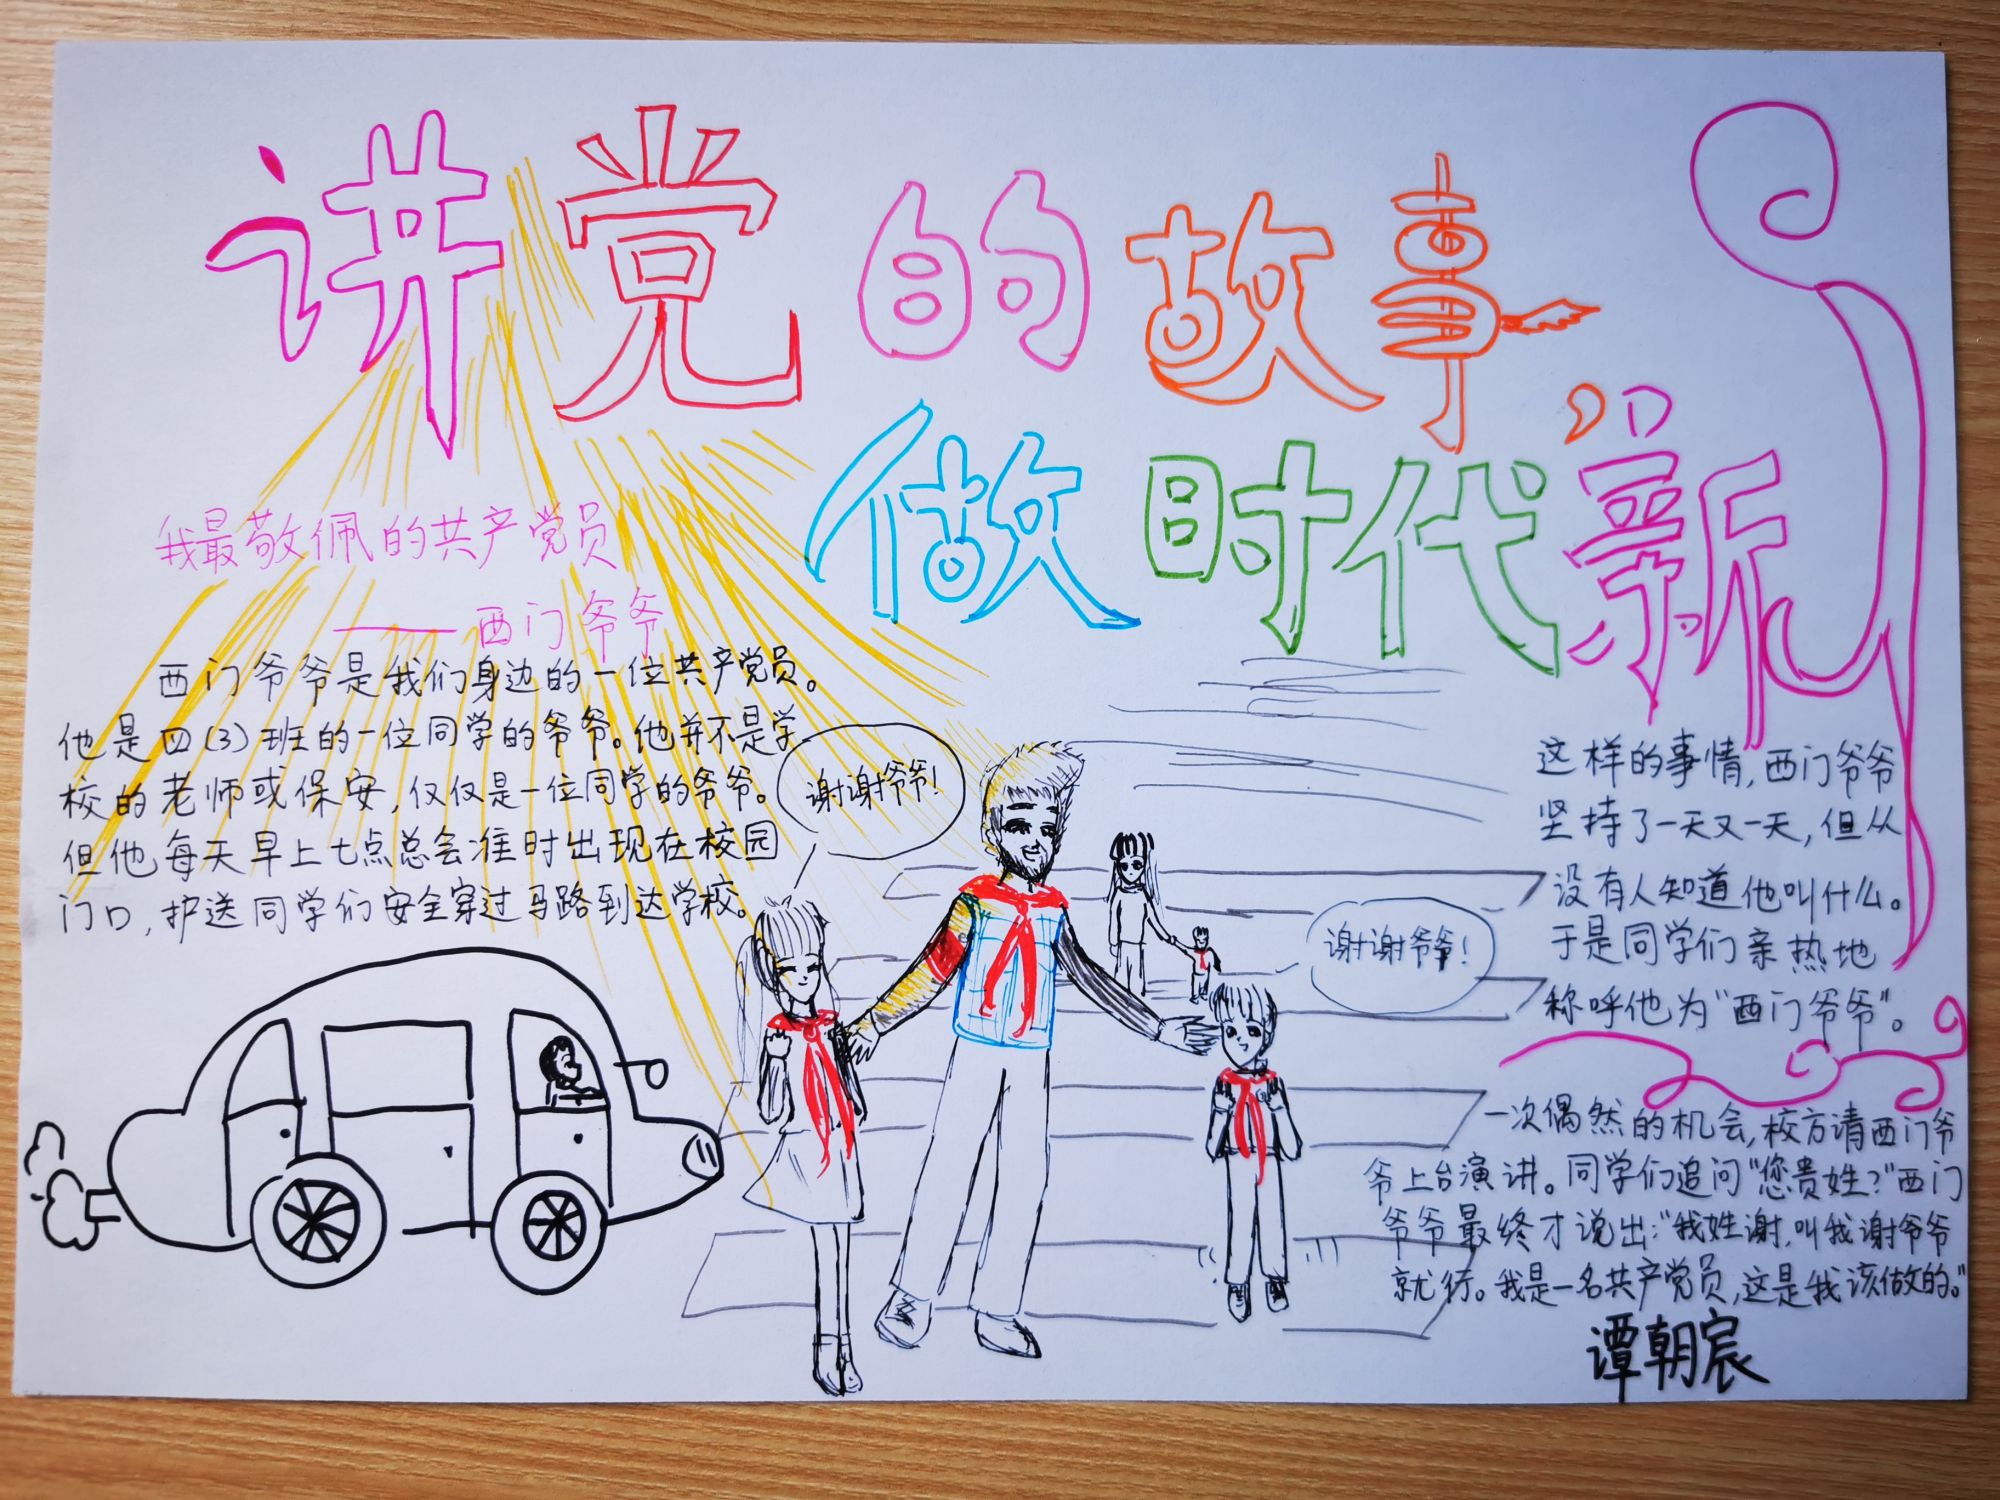 讲党的故事
做时代新
我最敬佩的共产党员
——西门爷爷
西门爷爷是我们身边的一位共产党员。
他是四(3)班的一位同学的爷爷。他并不是学
校的老师或保安,仅仅是一位同学的爷爷。
但他每天早上七点总会准时出现在校园
门口,护送同学们安全穿过马路到达学校。
谢谢爷爷!
谢谢爷爷!
这样的事情,西门爷爷
坚持了一天又一天,但从
没有人知道他叫什么。
于是同学们亲热地
称呼他为“西门爷爷”。
一次偶然的机会,校方请西门爷
爷上台演讲。同学们追问“您贵姓?”西门
爷爷最终才说出:“我姓谢,叫我谢爷爷
就行。我是一名共产党员,这是我该做的。”
谭朝宸